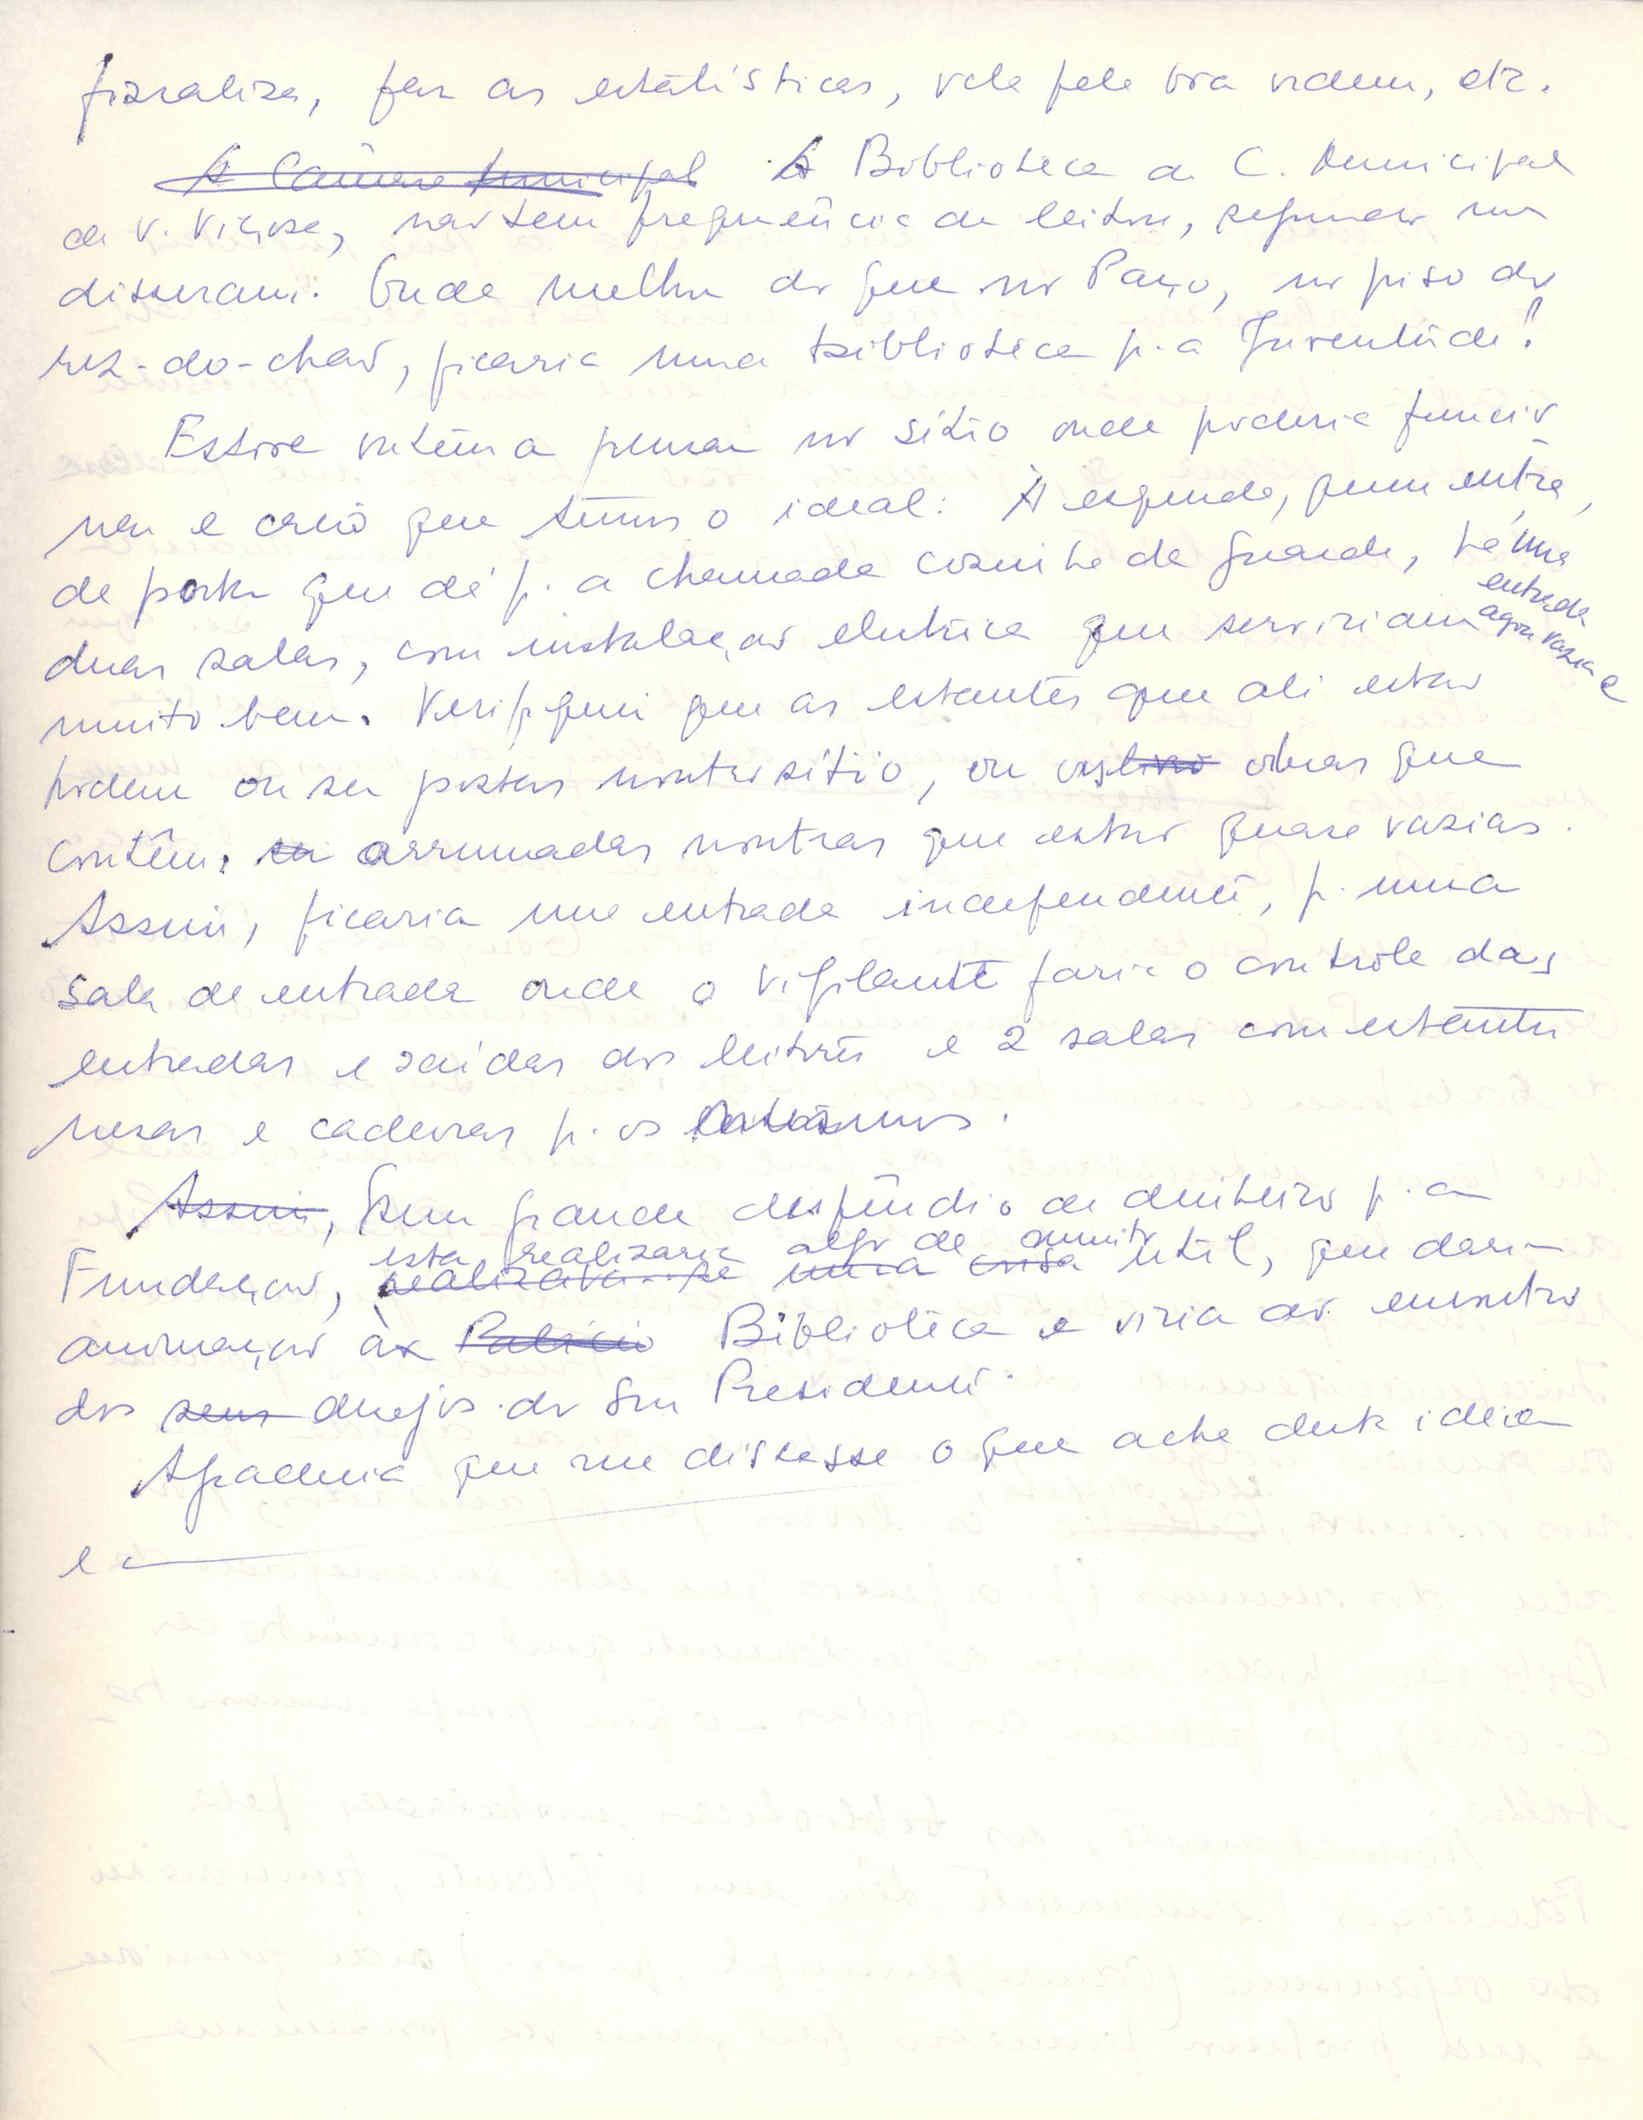 fiscaliza, faz as estatísticas, vela pela boa ordem, etc.
A Câmara Municipal A Biblioteca da C. Municipal
de V. Viçosa, não tem frequência de leitores, segundo me
disseram. Onde melhor do que no Paço, no piso do
rez-do-chão, ficaria uma biblioteca p.a Juventude!
Estive ontem a pensar no sítio onde poderia funcio
nar e creio que temos o ideal: À esquerda, quem entra,
da porta que dá p. a chamada cozinha da Guarda, há uma
entrada
agora vazia e
duas salas, com instalação eléctrica que serviriam
muito bem. Verifiquei que as estantes que ali estão
podem ou ser postas noutro sítio, ou obras que
contêm, arrumadas noutras que estão quase vazias.
Assim, ficaria uma entrada independente, p. uma
sala de entrada onde o vigilante faria o contrôle das
entradas e saídas dos leitores e 2 salas com estantes
mesas e cadeiras p. os
Assim, Sem grande dispêndio de dinheiro p. a
esta realizaria algo de muito
Fundação, realizava-se uma coisa útil, que daria
animação à Palácio Biblioteca e viria ao encontro
dos seus desejos do Snr Presidente.
Agradecia que me dissesse o que acha desta ideia
e